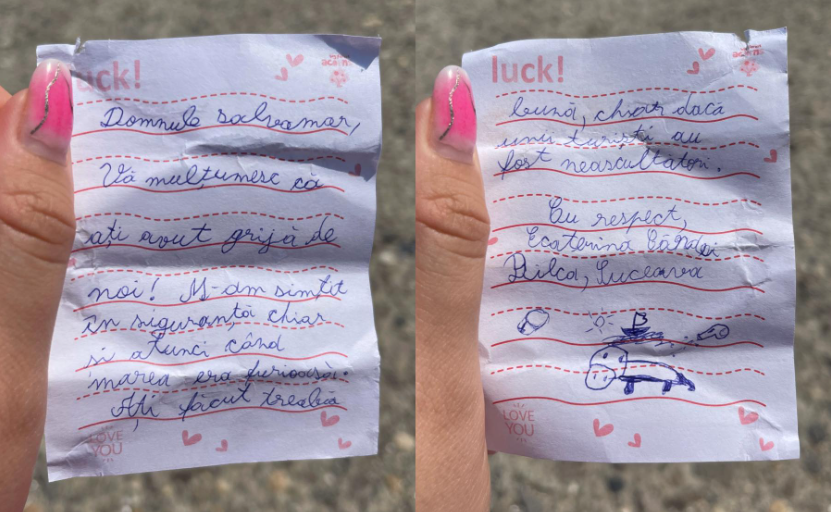 uck!
Domnule salvamar,
Vă mulțumesc că
ați avut grijă de
noi! M-am simțit
în siguranță chiar
și atunci când
marea era furioasă.
Ați făcut treabă
LOVE
YOU
luck!
bună, chiar dacă
unii turiști au
fost neascultatori.
Cu respect,
Ecaterina
Suceava
LOVE
YOU